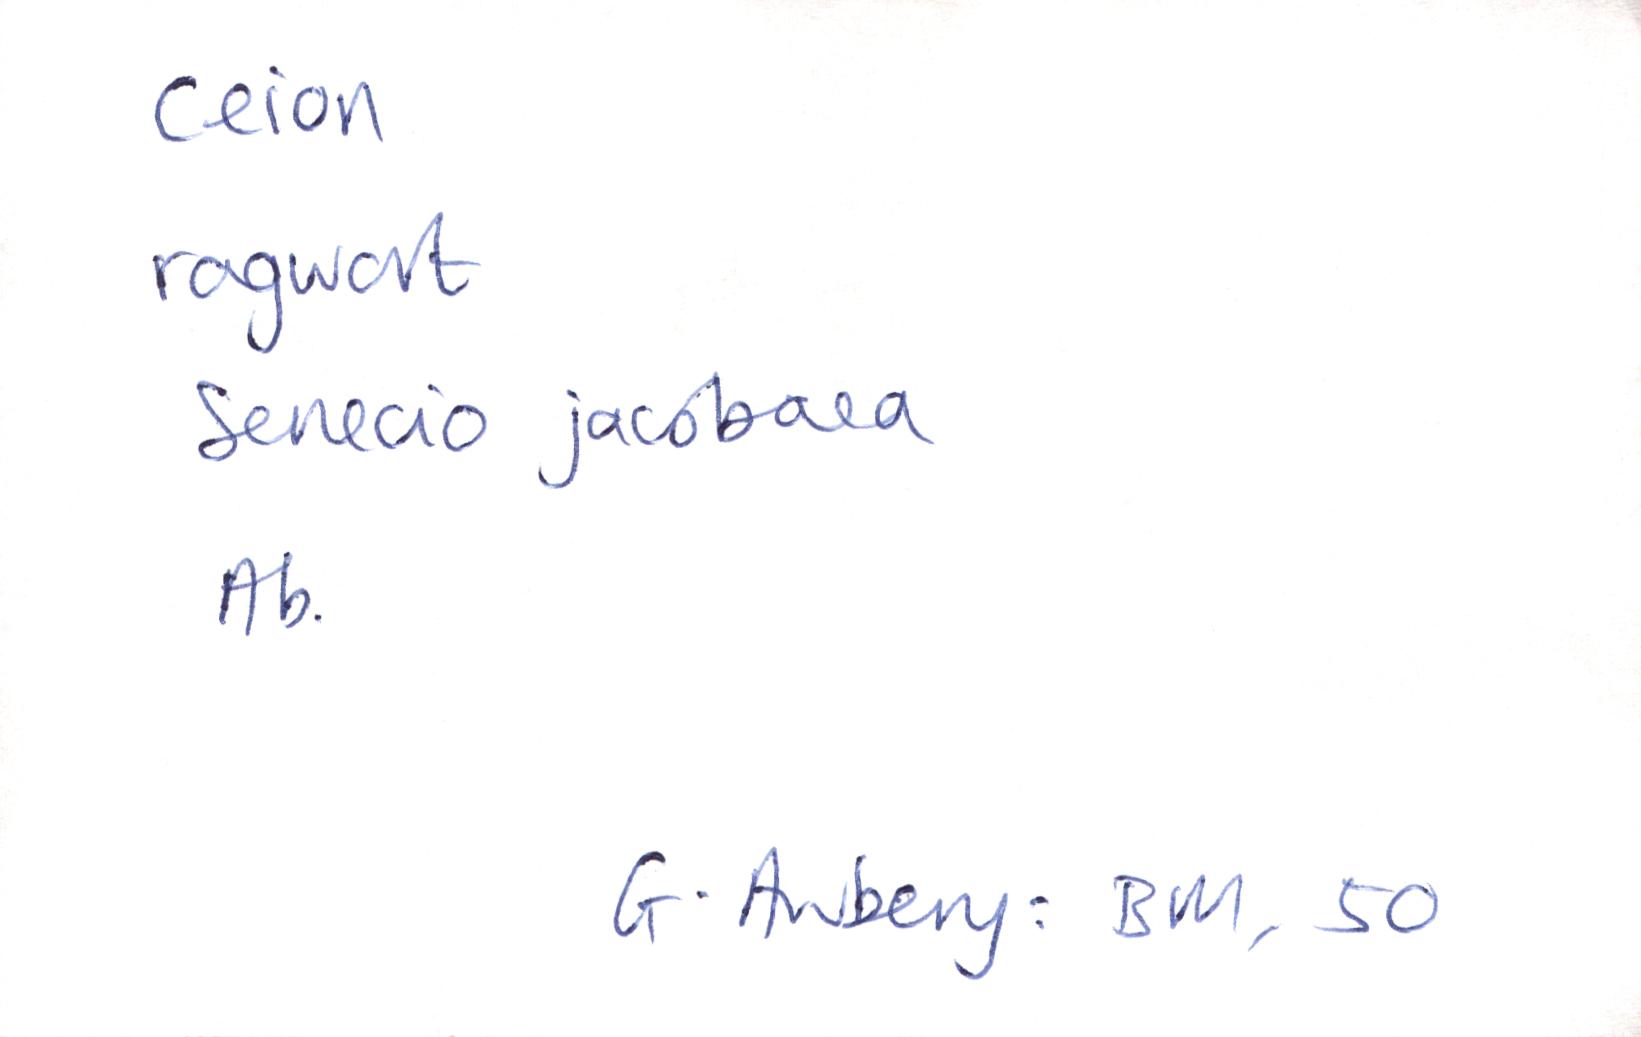 Ceion
ragwort
Senecio jacobaea
Ab.
G. Awbery: BM, 50